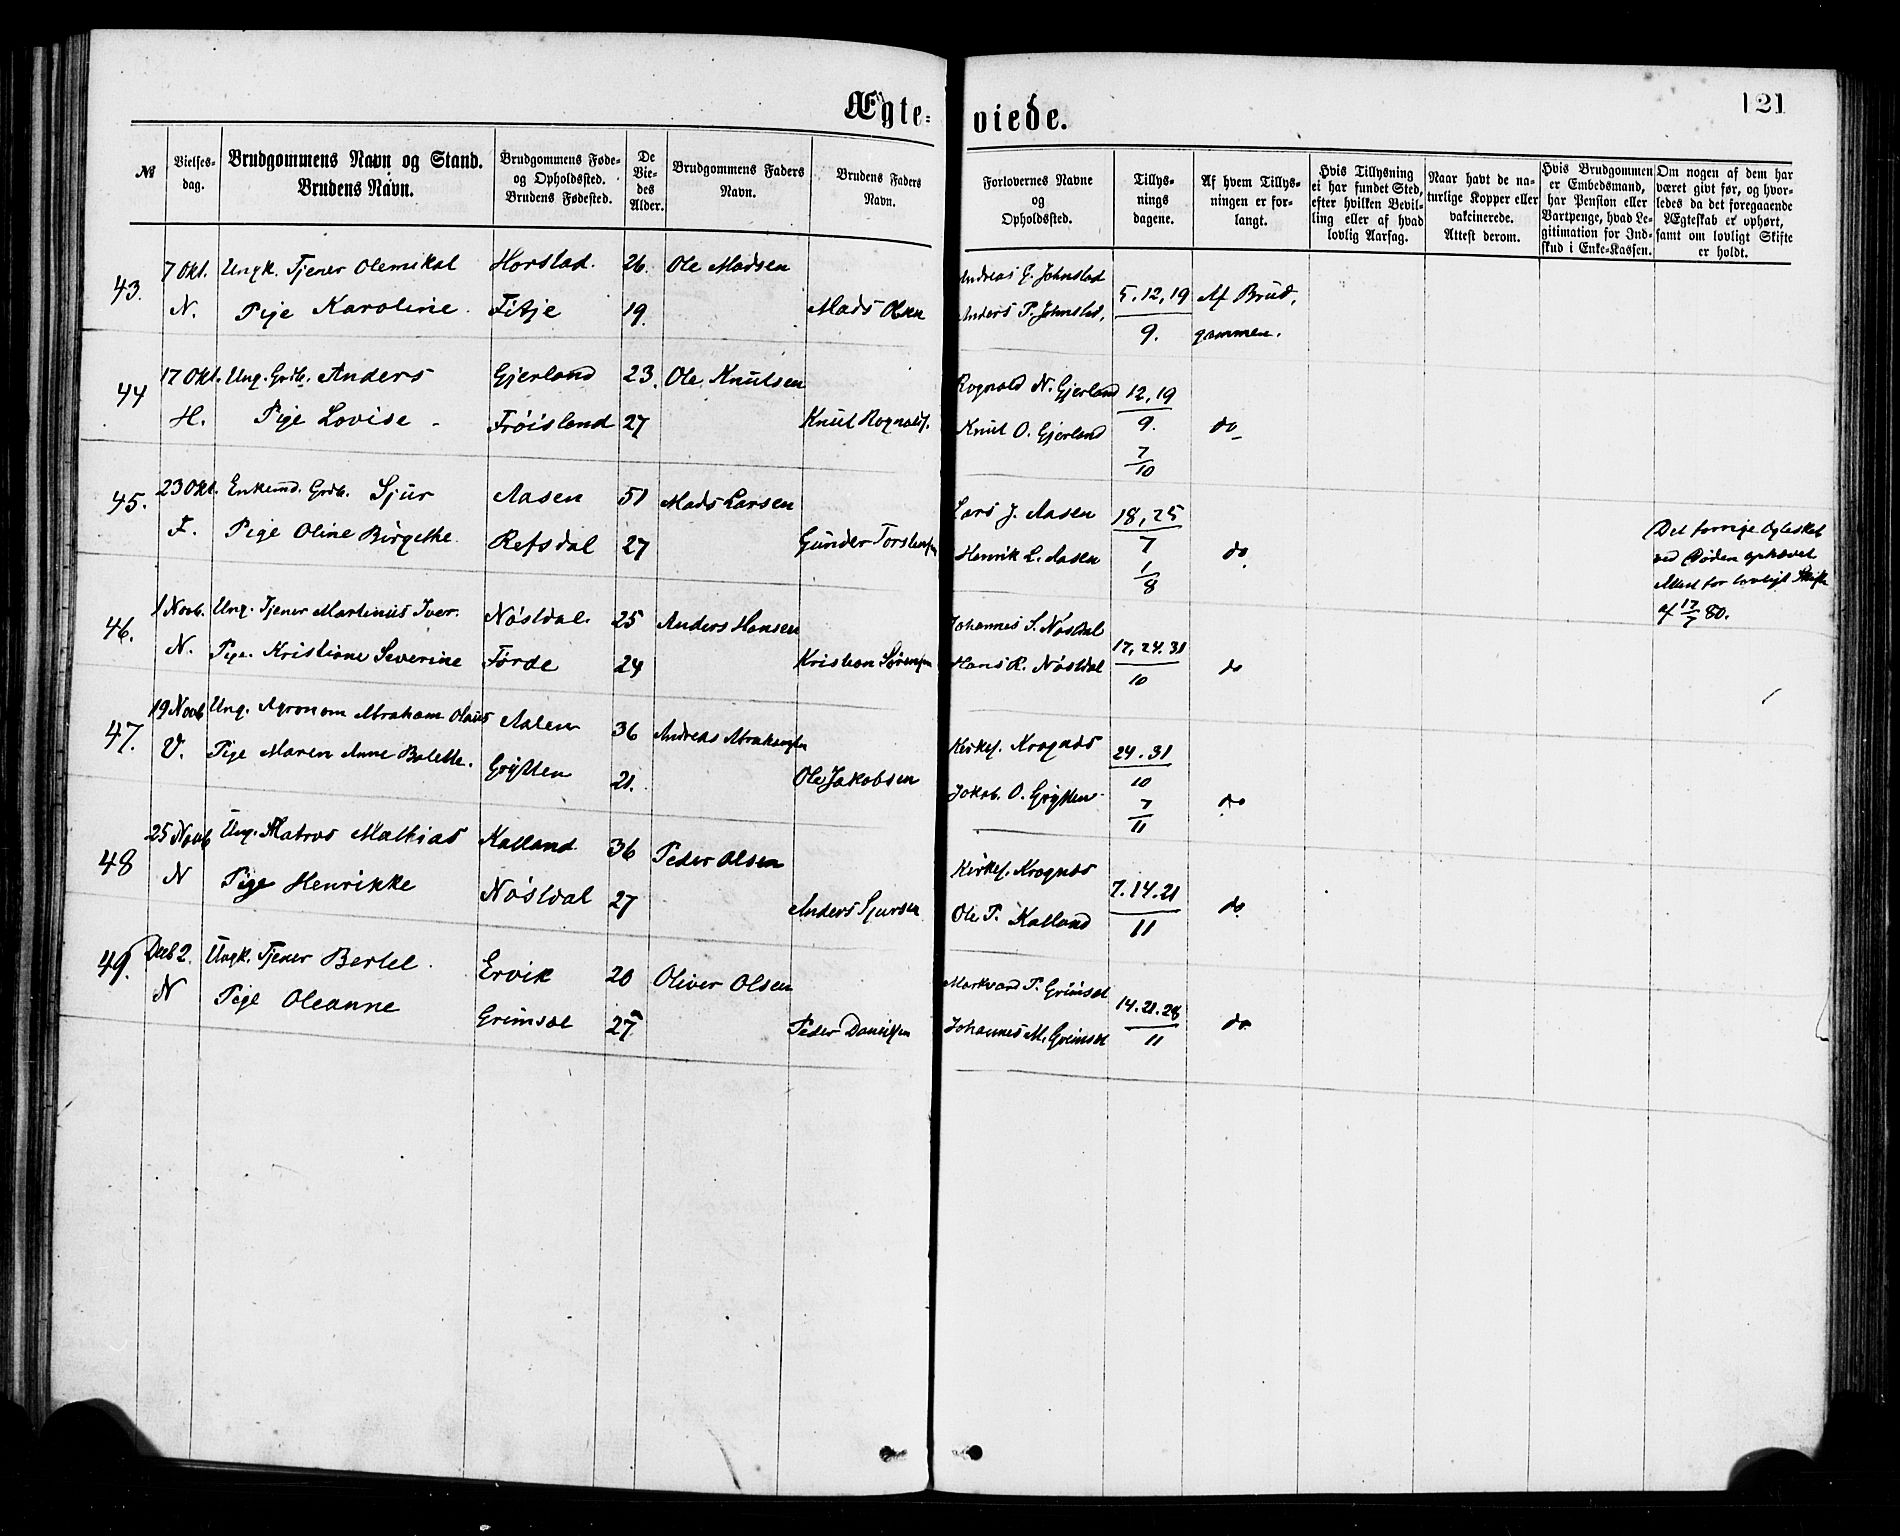 Ægte-
viede.
121
№
Vielses-
dag.
Brudgommens Navn og Stand.
Brudens Navn.
Brudgommens Føde-
og Opholdssted.
Brudens Fødested.
De
Vie-
des
Alder.
Brudgommens Faders
Navn.
Brudens Faders
Navn.
Forlovernes Navne
og
Opholdssted.
Tillys-
nings
dagene.
Af hvem Tillys-
ningen er for-
langt.
Hvis Tillysning
ei har fundet Sted,
efter hvilken Bevil-
ling eller af hvad
lovlig Aarsag.
Naar havt de na-
turlige Kopper eller
vakcinerede.
Attest derom.
Hvis Brudgommen
er Embedsmand,
har Pension eller
Vartpenge, hvad Le-
gitimation for Ind-
skud i Enke-Kassen.
Om nogen af dem har
været givt før, og hvor-
ledes da det foregaaende
Ægteskab er ophørt,
samt om lovligt Skifte
er holdt.
43. 7 Okt. Ungk. Tjener Olemikal Horstad. 26. Ole Madsen Andreas G. Johnstad
N. Pige Karoline. Fitje 19. Mads Olsen Anders P. Johnstad, 5. 12, 19 Af Brud,
9. gommen.
44 17 Okt. Ung. Grdb. Anders Gjerland 23. Ole Knutsen Rognald N. Gjerland 12, 19
H. Pige Lovise Frøisland 27 Knut Rognalds. Knut O. Gjerland 9. do
7
10
45. 23 Okt. Enkemd. Grdb. Sjur Aasen 51 Mads Larsen Lars J. Aasen 18, 25
F. Pige Oline Birgethe. Refsdal 27 Gunder Torstensen Henrik L. Aasen 7 do.
1
8
Det forrige Egteskab
ved Døden ophævet
Attest for lovligt Skifte
af 17/7 80.
46. 1 Novb. Ung. Tjener Martinus Iver. Nøstdal. 25 Anders Hansen Johannes S. Nøstdal
N. Pige. Kristiane Severine Førde 24 Kristian Sørensen Hans R. Nøstdal 17, 24. 31
10 do
47. 19 Novb Ung. Agronom Abraham Olaus Aalen 36 Andreas Abrahamsen Kirkes. Krognæs 24. 31
V. Pige Maren Anne Bolette. Grytten 21. Ole Jakobsen Jakob. O. Grytten 10 do
7
11
48 25 Novb Ung. Matros Mathias Kalland 36 Peder Olsen Kirkes. Krognæs
N Pige Henrikke Nøstdal 27 Anders Sjursen Ole P. Kalland 7. 14. 21
11 do
49. Decb 2. Ungk. Tjener Bertel. Ervik 20 Oliver Olsen Markvard P. Grimsæt
N Pige Oleanne Grimsæt 27 Peder Danielsen Johannes M. Grimsæt 14. 21. 28
11 do